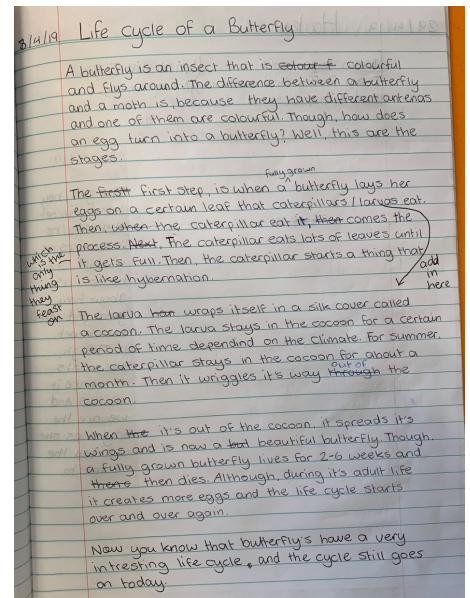 8/4/19
Life Cycle of a Butterfly
A butterfly is an insect that is colour f colourful
and flys around. The difference between a butterfly
and a moth is, because they have different antenas
and one of them are colourful. Though, how does
an egg turn into a butterfly? Well, this are the
stages.
fully grown
The first first step, is when a butterfly lays her
eggs on a certain leaf that caterpillars/larvas eat.
Then, when the caterpillar eat it, then comes the
process. Next, The caterpillar eats lots of leaves until
it gets full. Then, the caterpillar starts a thing that
is like hybernation.
which
is the
only
thing
they
feast
on
add
in
here
The larva wraps itself in a silk cover called
a cocoon. The larva stays in the cocoon for a certain
period of time dependind on the climate. For summer,
the caterpillar stays in the cocoon for about a
out of
month. Then it wriggles it's way through the
cocoon.
When the it's out of the cocoon, it spreads it's
wings and is now a beautiful butterfly. Though,
a fully grown butterfly lives for 2-6 weeks and
then dies. Although, during it's adult life
it creates more eggs and the life cycle starts
over and over again.
Now you know that butterfly's have a very
intresting life cycle, and the cycle still goes
on today.